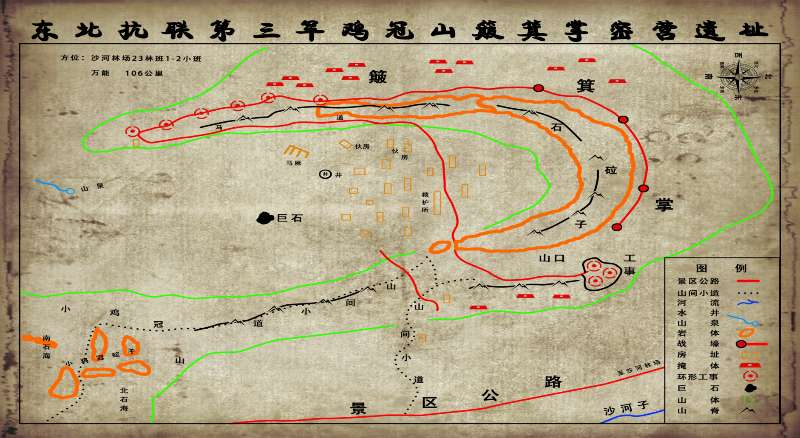 东北抗联第三军鸡冠山簸箕掌密营遗址
方位：沙河林场23林班1-2小班
万能 106公里
西
北
东
南
簸
箕
掌
马
道
石
砬
子
伙房
伙房
马厩
井
井
救护所
山泉
巨石
山口
工事
小
鸡
冠
山
山
间
小
道
山
间
小
道
南石海
北石海
景区公路
至沙河林场
沙河子
图例
景区公路
山间小道
河流
水井
山泉
岩体
战壕
房址
掩体
环形工事
巨石
山体
山脊